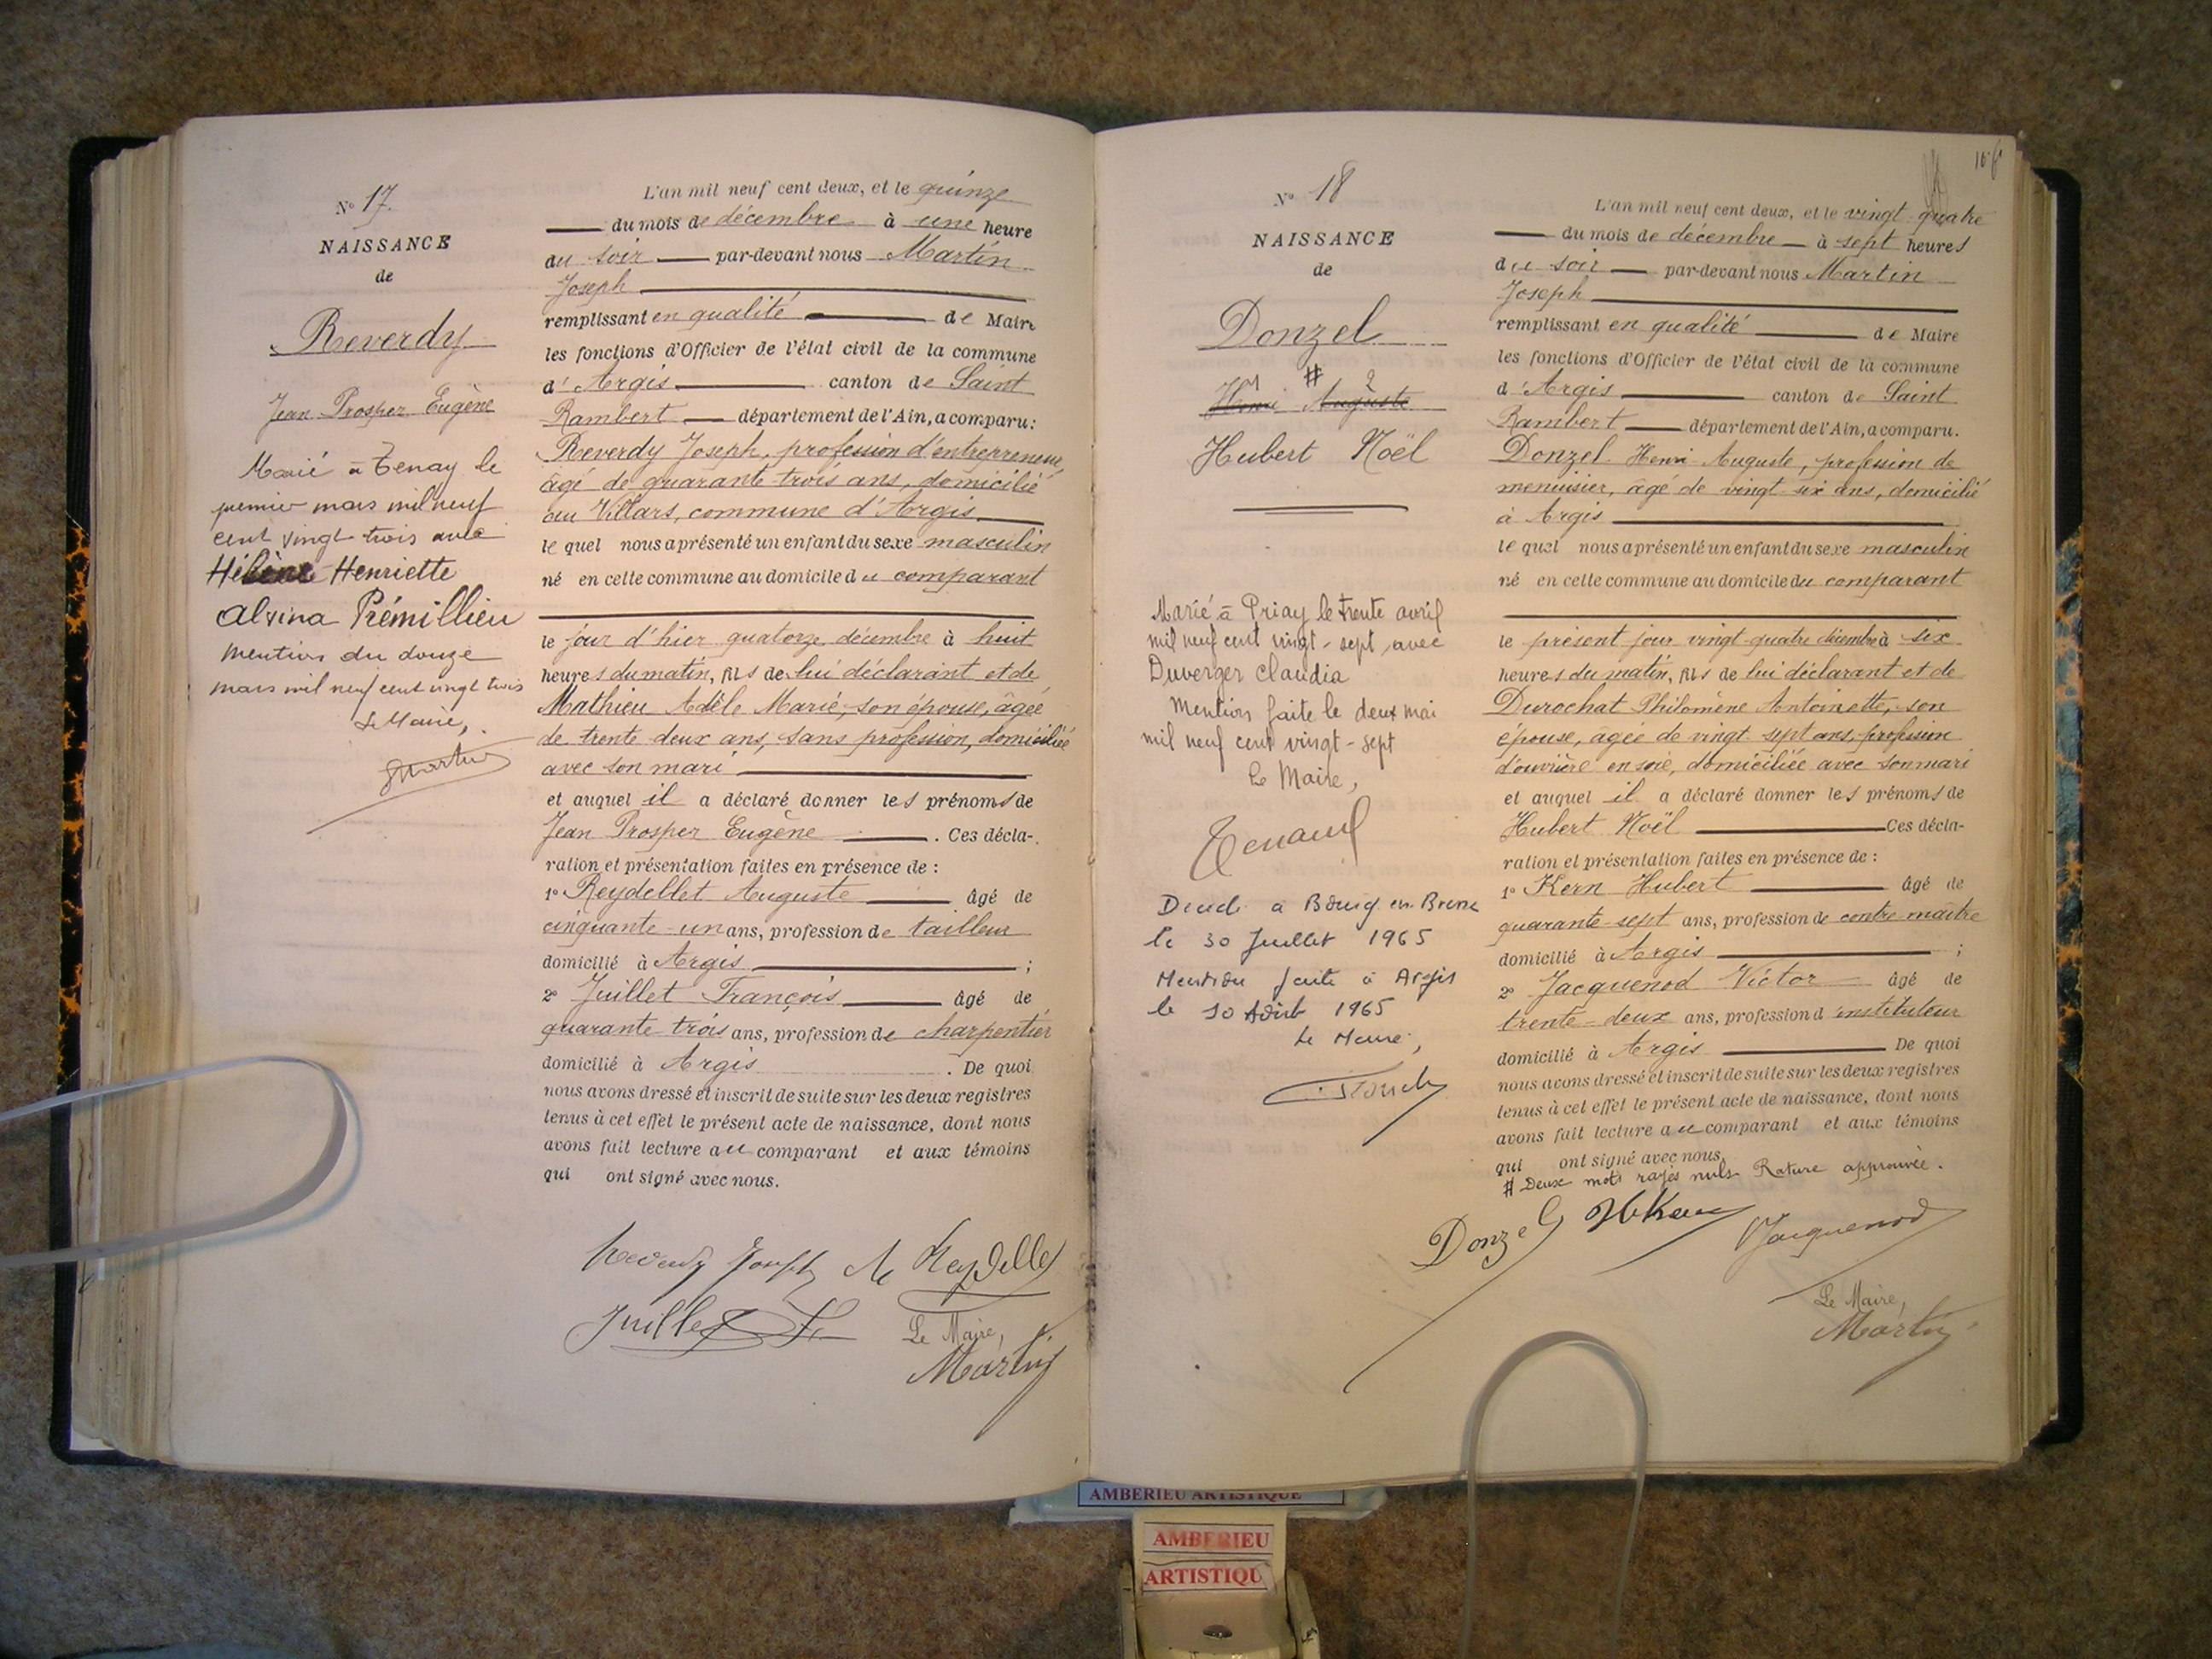 Nº 17.
NAISSANCE
de
Reverdy
Jean Prosper Eugène
Marié à Tenay le
premier mars mil neuf
cent vingt trois avec
Hélène Henriette
Alvina Prémillieu
Mention du douze
mars mil neuf cent vingt trois
Le Maire,
Martin
L'an mil neuf cent deux, et le quinze
du mois de décembre à une heure
du soir par-devant nous Martin
Joseph
remplissant en qualité de Maire
les fonctions d'Officier de l'état civil de la commune
d'Argis canton de Saint
Rambert département de l'Ain, a comparu:
Reverdy Joseph, profession d'entrepreneur,
âgé de quarante trois ans, domicilié
au Villars, commune d'Argis
le quel nous a présenté un enfant du sexe masculin
né en cette commune au domicile du comparant
le jour d'hier quatorze décembre à huit
heures du matin, fils de lui déclarant et de
Mathieu Adèle Marie, son épouse, âgée
de trente deux ans, sans profession, domiciliée
avec son mari
et auquel il a déclaré donner les prénoms de
Jean Prosper Eugène . Ces décla-
ration et présentation faites en présence de :
1º Reydellet Auguste âgé de
cinquante-un ans, profession de tailleur
domicilié à Argis ;
2º Juillet François âgé de
quarante trois ans, profession de charpentier
domicilié à Argis . De quoi
nous avons dressé et inscrit de suite sur les deux registres
tenus à cet effet le présent acte de naissance, dont nous
avons fait lecture au comparant et aux témoins
qui ont signé avec nous.
Reverdy Joseph A Reydellet
Juillet F
Le Maire,
Martin
106
Nº 18
NAISSANCE
de
Donzel
#
Henri Auguste
Hubert Noël
Marié à Priay le trente avril
mil neuf cent vingt-sept avec
Duverger Claudia
Mention faite le deux mai
mil neuf cent vingt-sept
Le Maire,
Décédé à Bourg en Bresse
le 30 Juillet 1965
Mention faite à Argis
le 10 Août 1965
Le Maire,
L'an mil neuf cent deux, et le vingt quatre
du mois de décembre à sept heures
du soir par-devant nous Martin
Joseph
remplissant en qualité de Maire
les fonctions d'Officier de l'état civil de la commune
d'Argis canton de Saint
Rambert département de l'Ain, a comparu.
Donzel Henri Auguste, profession de
menuisier, âgé de vingt six ans, domicilié
à Argis
le quel nous a présenté un enfant du sexe masculin
né en cette commune au domicile du comparant
le présent jour vingt-quatre décembre à six
heures du matin, fils de lui déclarant et de
Durochat Philomène Antoinette, son
épouse, agée de vingt sept ans, profession
d'ouvrière en soie, domiciliée avec son mari
et auquel il a déclaré donner les prénoms de
Hubert Noël Ces décla-
ration et présentation faites en présence de :
1º Kern Hubert âgé de
quarante-sept ans, profession de contre maître
domicilié à Argis ;
2º Jacquenod Victor âgé de
trente-deux ans, profession d'instituteur
domicilié à Argis De quoi
nous avons dressé et inscrit de suite sur les deux registres
tenus à cet effet le présent acte de naissance, dont nous
avons fait lecture au comparant et aux témoins
qui ont signé avec nous.
# Deux mots rayés nuls Rature approuvée.
Donzel H Kern Jacquenod
Le Maire,
Martin
AMBERIEU ARTISTIQUE
AMBERIEU
ARTISTIQU